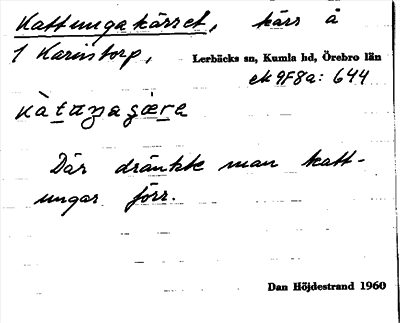 Kattungakärret, kärr å
1 Karinstorp,
Lerbäcks sn, Kumla hd, Örebro län
ek 9F8a: 644
Där dränkte man katt-
ungar förr.
Dan Höjdestrand 1960